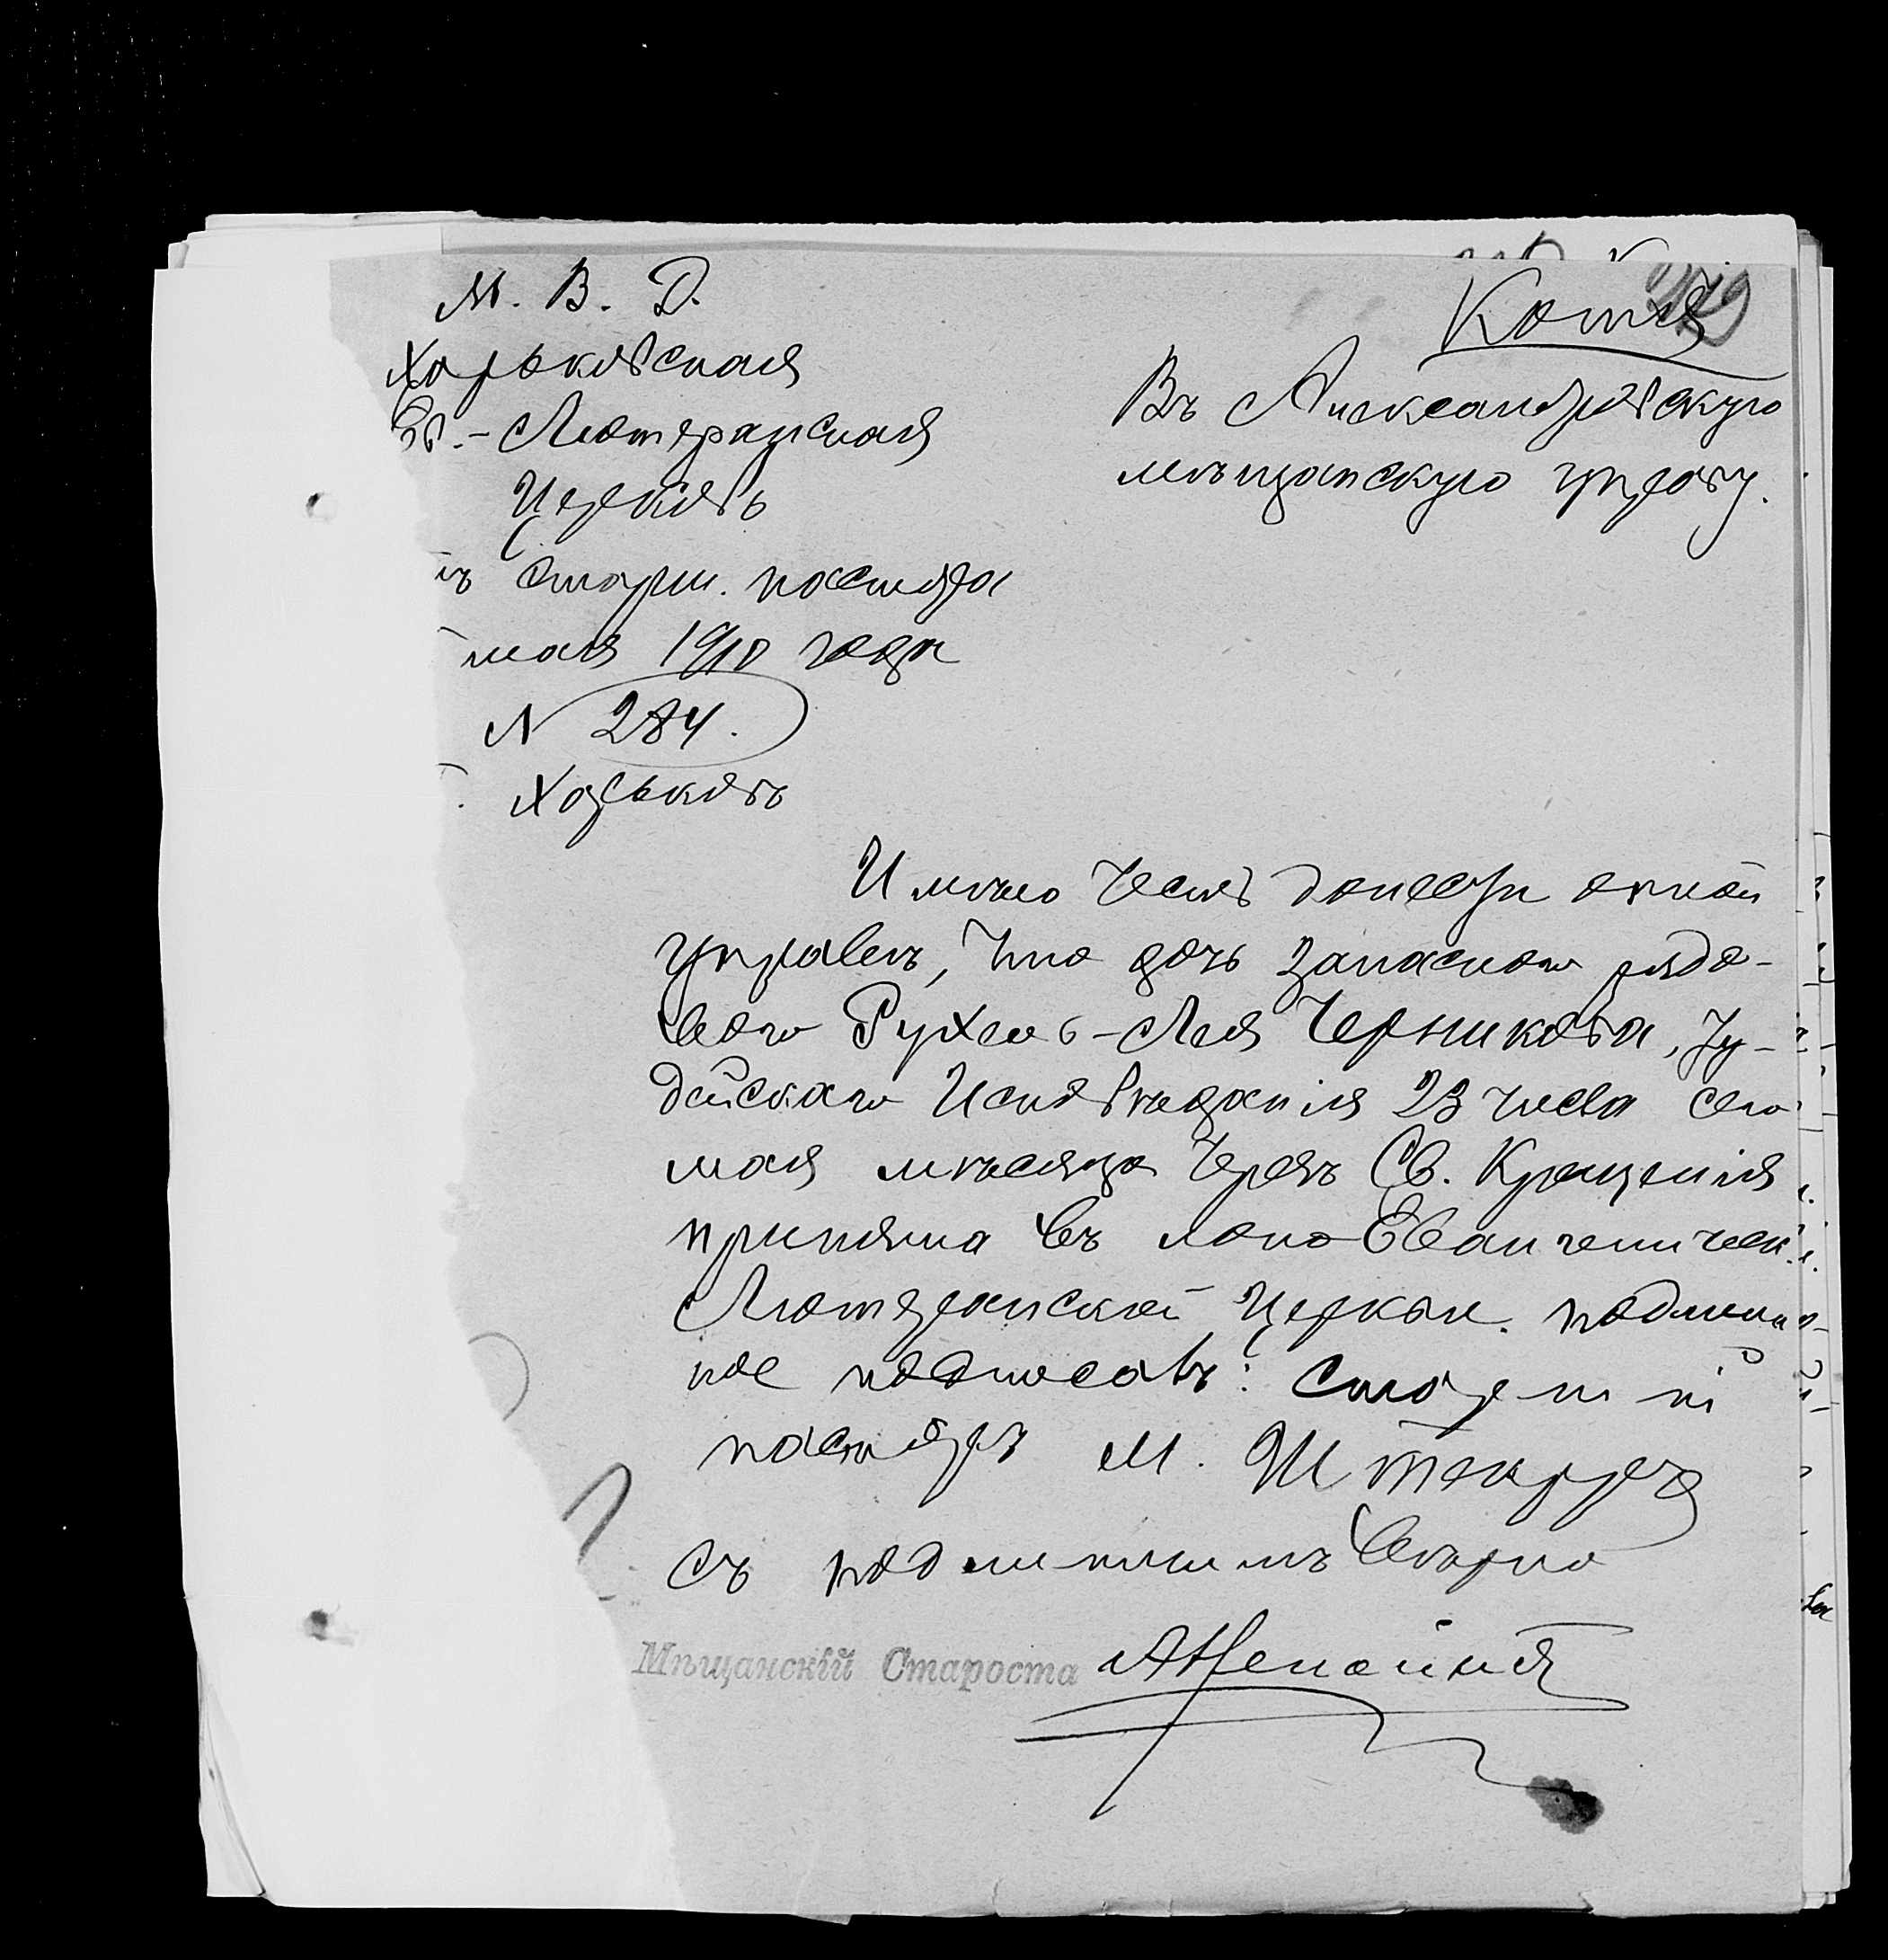 Копія
М. В. Д.
Харьковская
Ев.-Лютеранская
Церковь
Старш. пастора
мая 1910 года
N 284.
Харьковъ
Въ Александровскую
мѣщанскую управу.
Имѣю честь донести оной
управѣ, что дочь запасного рядо-
вого Рухель-Лея Черникова, Іу-
дейскаго Исповѣданія 23 числа сего
мая мѣсяца чрезъ Св. Крещенія
принята въ лоно Евангелическ.
Лютеранской Церкви. подлин-
ное подписалъ: Старшій
пасторъ М.
съ подлиннымъ вѣрно
Мѣщанскій Староста